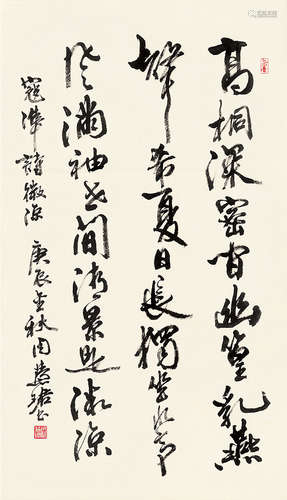 高桐深密間幽篁乳燕
聲希夏日長獨坐水亭
風滿袖世間清景是微涼
寇準詩微涼 庚辰金秋周慧珺書